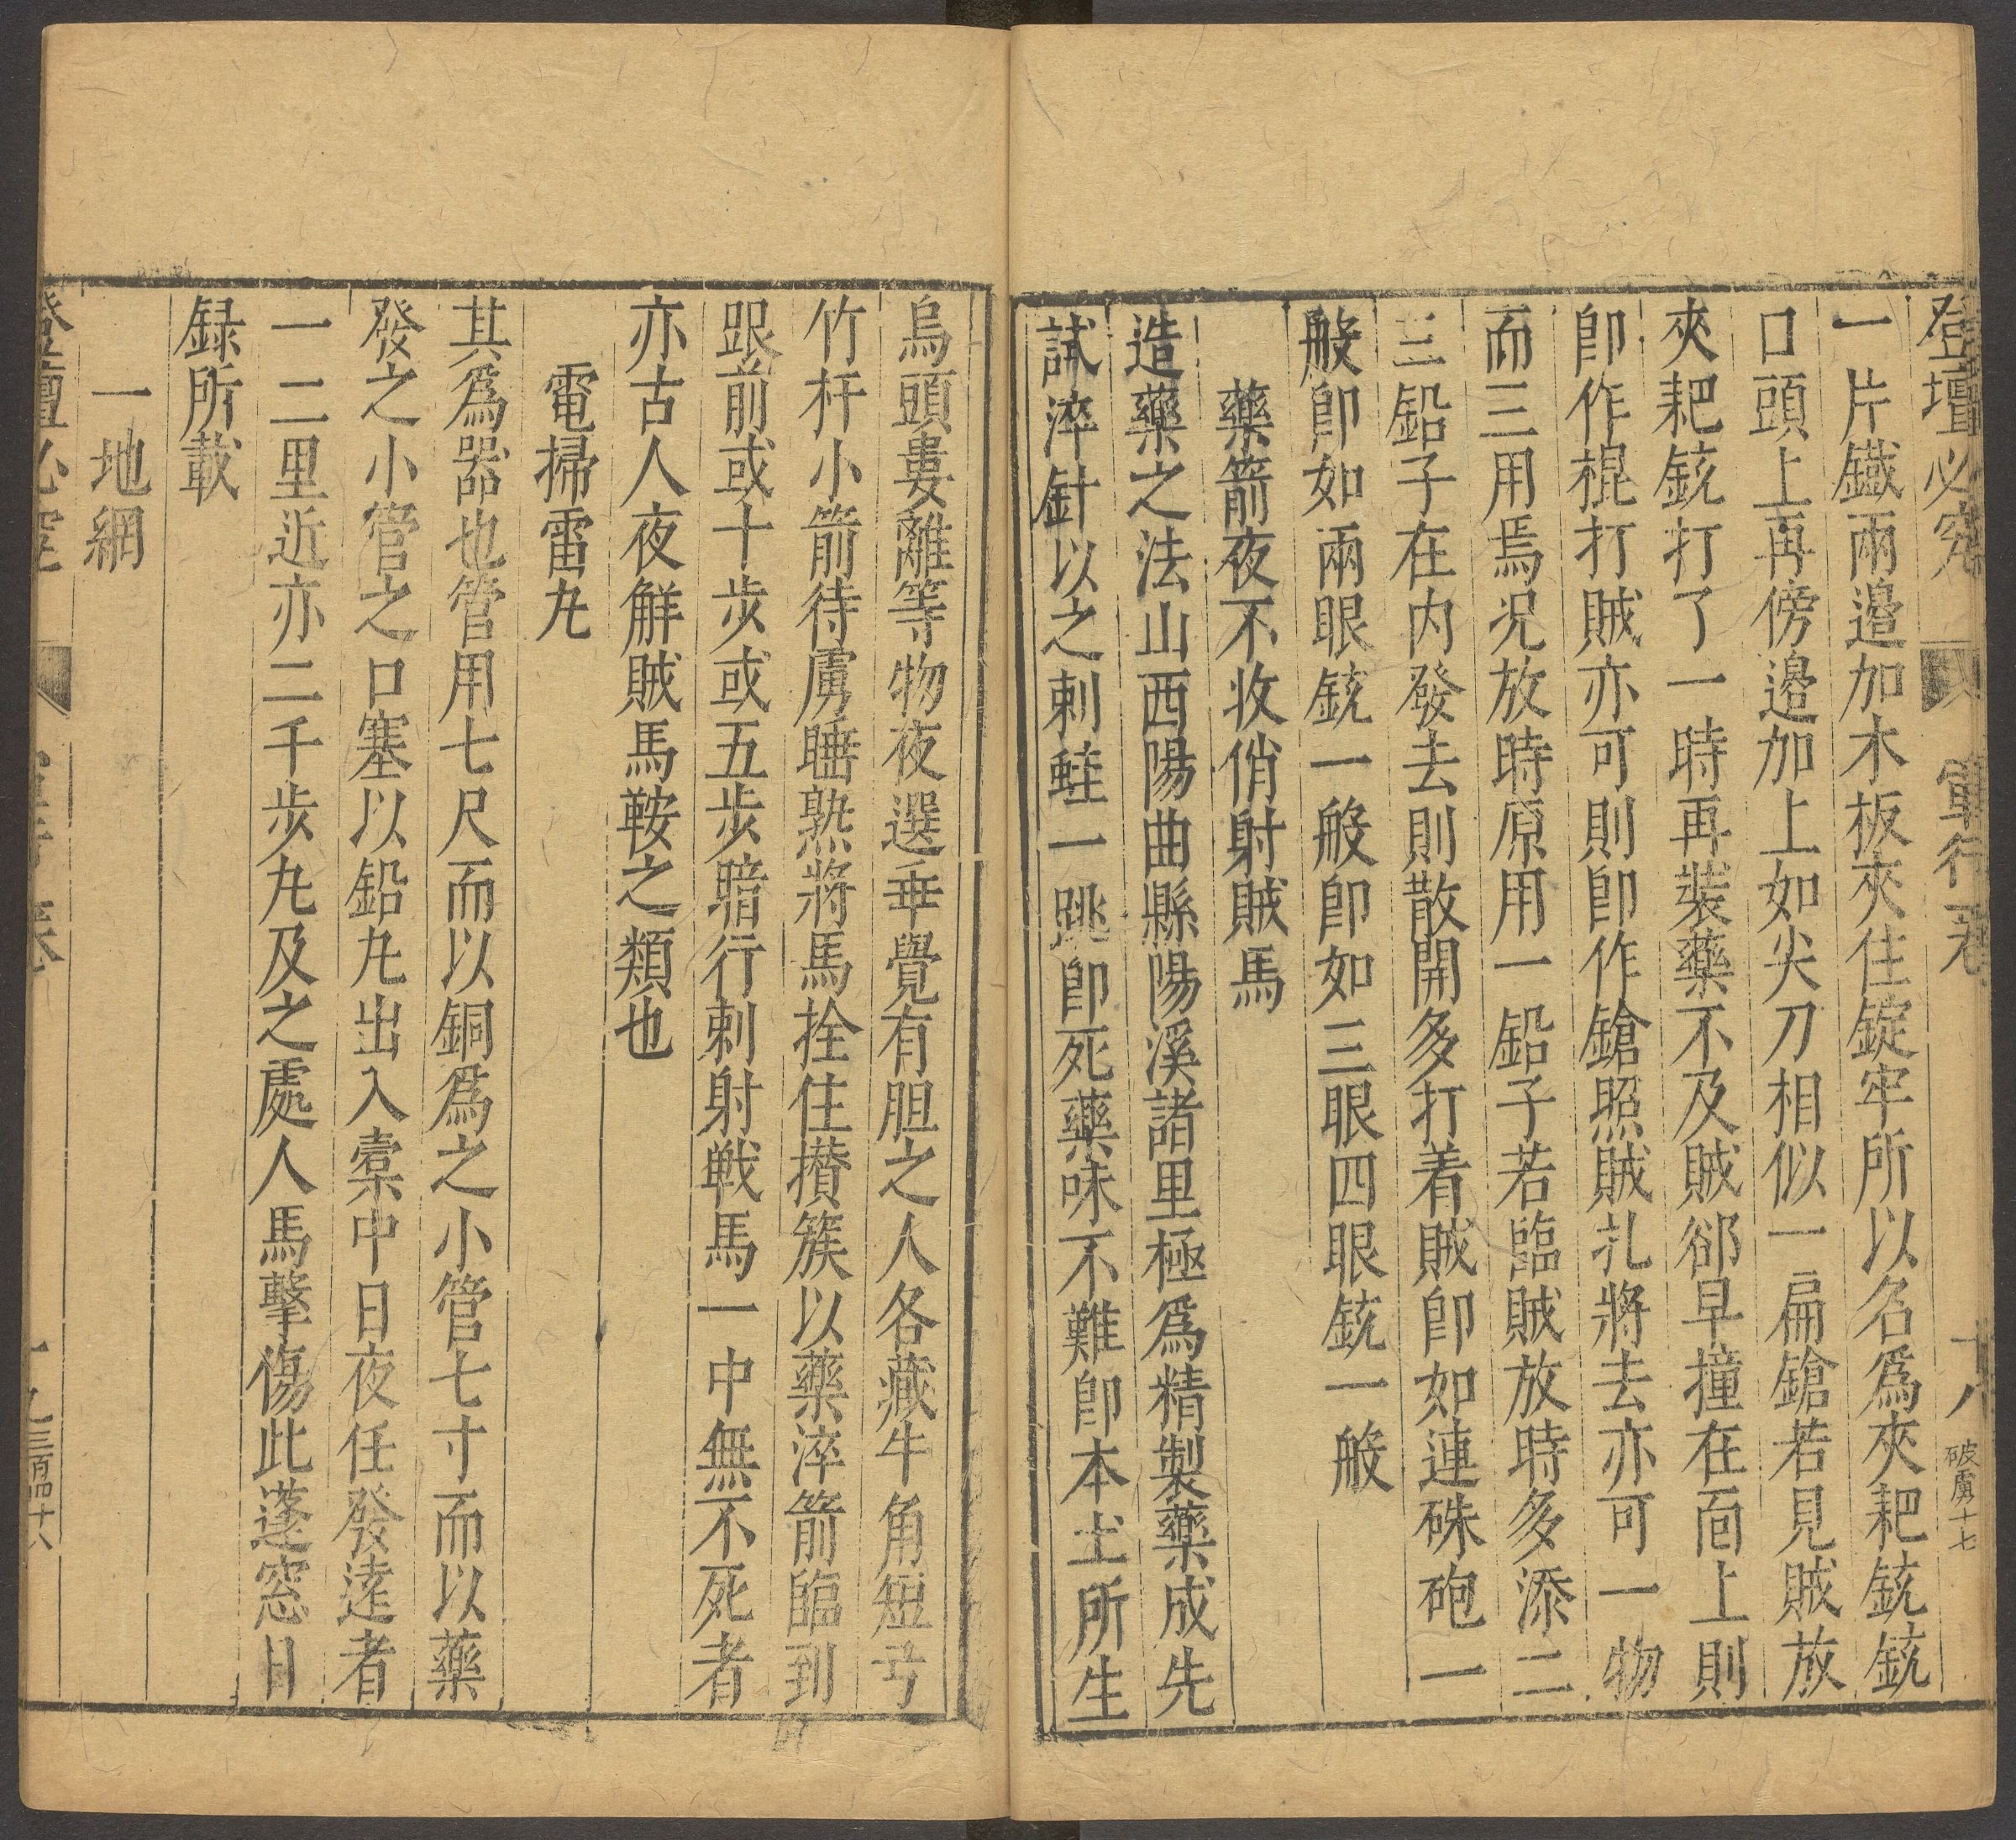 登壇必究 軍行一卷 十八 破虜十七
一片鐵兩邉加木板夾住錠牢所以名爲夾耙銃銃
口頭上再傍邉加上如尖刀相似一扁鎗若見賊放
夾耙銃打了一時再裝藥不及賊郤早撞在面上則
卽作棍打賊亦可則卽作鎗照賊扎將去亦可一物
而三用焉况放時原用一鉛子若臨賊放時多添二
三鉛子在内發去則散開多打着賊卽如連硃砲一
般卽如兩眼銃一般卽如三眼四眼銃一般
藥箭夜不收俏射賊馬
造藥之法山西陽曲縣陽溪諸里極爲精製藥成先
試淬針以之刺蛙一跳卽死藥味不難卽本土所生
烏頭蔞離等物夜選乖覺有胆之人各藏牛角短弓
竹杆小箭待虜睡熟將馬拴住攅簇以藥淬箭臨到
跟前或十步或五步暗行刺射戰馬一中無不死者
亦古人夜觧賊馬鞍之類也
電掃雷九
其爲器也管用七尺而以銅爲之小管七寸而以藥
發之小管之口塞以鉛九出入橐中日夜任發逺者
一二里近亦二千步九及之處人馬擊傷此蓬窓日
録所載
一地網
登壇必究 卷 十九 三百四十八